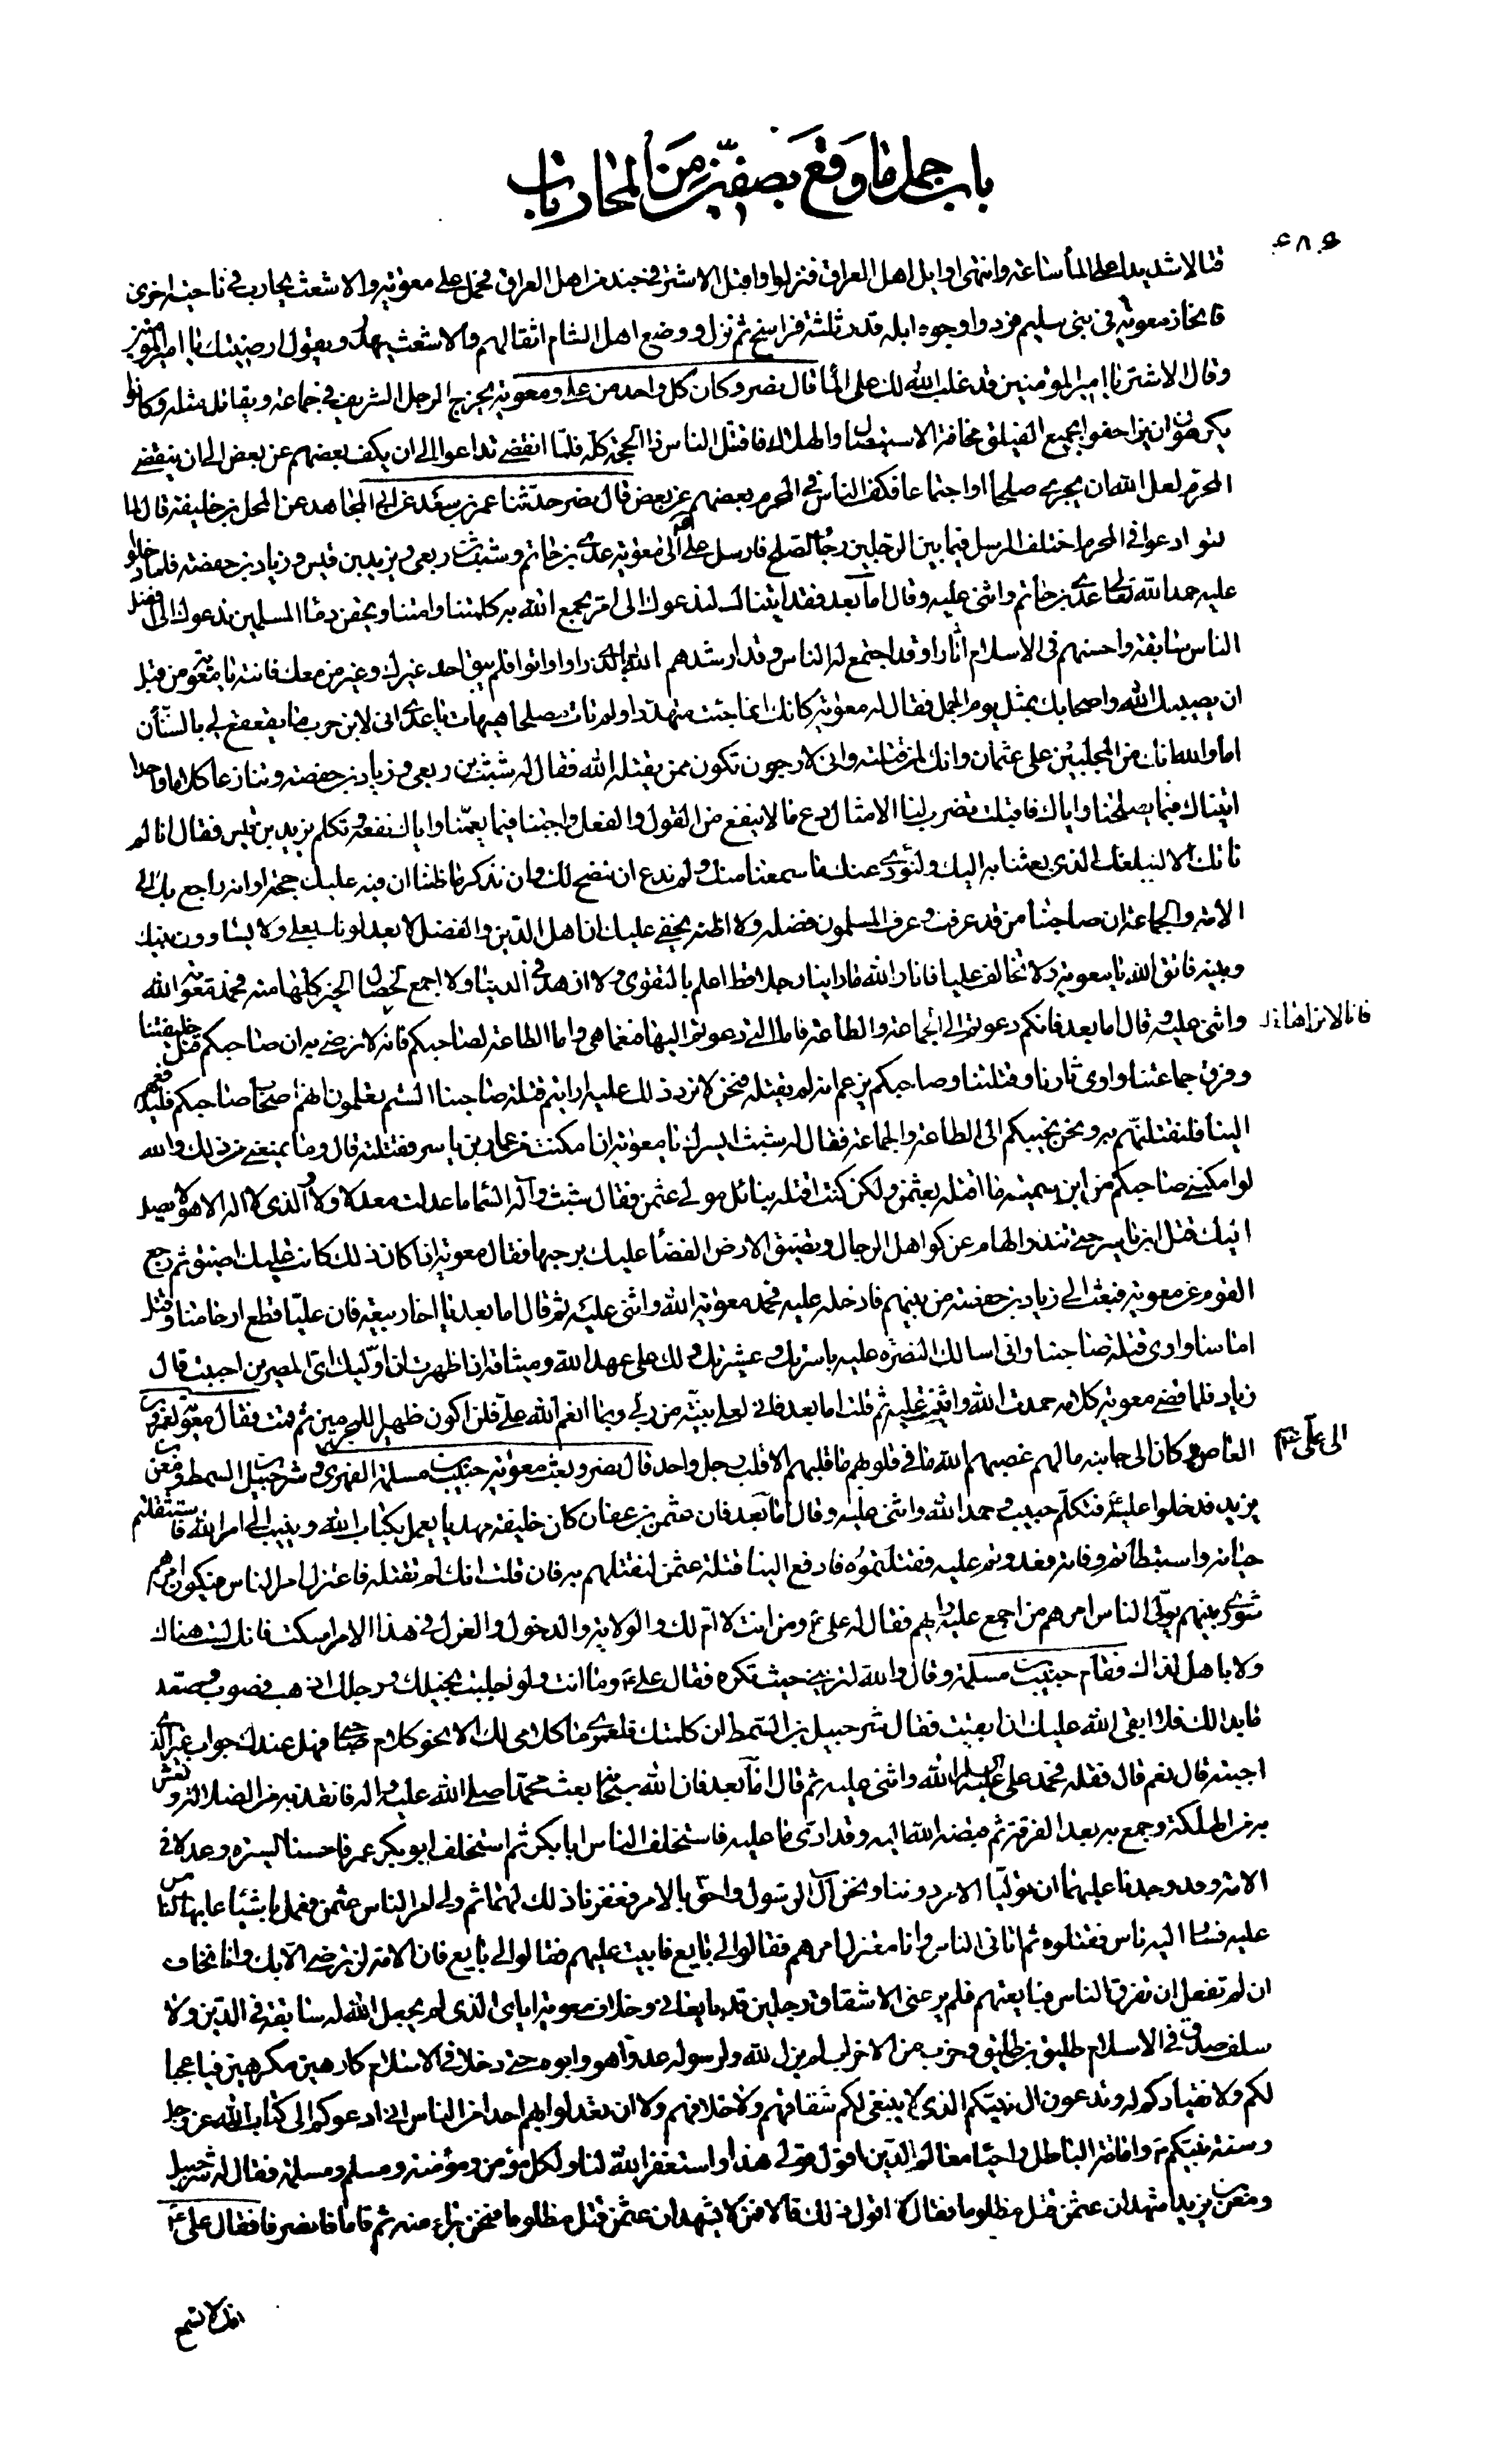 باب جمل ما وقع بصفين من المحاربات
قتالا شديدا على الماء ساعة وانتهى اوايل اهل العراق فنزلوا واقبل الاشتر في جند من اهل العراق فحمل على معوية والاشعث يحارب في ناحية اخرى
فانحاز معوية في بني سليم فردوا وجوه ابله قدر ثلثة فراسخ ثم نزل ووضع اهل الشام اثقالهم والاشعث يهدر ويقول ارضيتك يا امير المؤمنين
وقال الاشتر يا امير المؤمنين قد غلب الله لك على الماء قال نصر وكان كل واحد من على ومعوية يخرج الرجل الشريف في جماعة ويقاتل مثله وكانوا
يكرهون ان يزاحفوا بجميع الفيلق مخافة الاستيصال والهلاك فاقتتل الناس ذا الحجة كله فلما انقضى تداعوا الى ان يكف بعضهم عن بعض الى ان ينقضى
المحرم لعل الله ان يجرى صلحا او اجتماعا فكف الناس في المحرم بعضهم عن بعض قال نصر حدثنا عمر بن سعد عن ابى المجاهد عن المحل بن خليفة قال لما
توادعوا في المحرم اختلف الرسل فيما بين الرجلين رجاء الصلح فارسل على الى معوية عدى بن حاتم وشبث بن ربعى ويزيد بن قيس وزياد بن حفصة فلما دخلوا
عليه حمد الله تعالى عدى بن حاتم واثنى عليه وقال اما بعد فقد اتيناك لندعوك الى امر يجمع الله به كلمتنا وامتنا ويحقن دماء المسلمين ندعوك الى افضل
الناس سابقة واحسنهم في الاسلام اثارا وقد اجتمع له الناس وقد ارشدهم الله بالذى راوا واتوا فلم يبق احد غيرك وغير من معك فانته يا معوية من قبل
ان يصيبك الله واصحابك بمثل يوم الجمل فقال له معوية كانك انما جئت متهددا ولم تات مصلحا هيهات يا عدى انى لابن حرب ما يقعقع لى بالشنان
اما والله انك من المجلبين على عثمان وانك لمن قتلته وانى لارجو ان تكون ممن يقتله الله فقال له شبث بن ربعى وزياد بن حفصة وتنازعا كلاما واحدا
اتيناك فيما يصلحنا واياك فاقبلت تضرب لنا الامثال دع ما لا ينفع من القول والفعل واجبنا فيما يعمنا واياك نفعه وتكلم يزيد بن قيس فقال انا لم
ناتك الا لنبلغك الذى بعثنا به اليك ولنؤدى عنك ما سمعنا منك ولم ندع ان ننصح لك وان نذكر ما ظننا ان فيه عليك حجة او انه راجع بك الى
الامة والجماعة ان صاحبنا من قد عرفت وعرف المسلمون فضله ولا اظنه يخفى عليك ان اهل الدين والفضل لا يعدلونك بعلى ولا يساوون بينك
وبينه فاتق الله يا معوية ولا تخالف عليا فانا والله ما راينا رجلا قط اعلم بالتقوى ولا ازهد في الدنيا ولا اجمع لخصال الخير كلها منه فحمد معوية الله
واثنى عليه وقال اما بعد فانكم دعوتم الى الجماعة والطاعة فاما التى دعوتم اليها فنعما هى واما الطاعة لصاحبكم فانه لا نرضى به ان صاحبكم قتل خليفتنا
وفرق جماعتنا واوى ثارنا وقتلتنا وصاحبكم يزعم انه لم يقتله فنحن لا نرد ذلك عليه ارايتم قتلة صاحبنا الستم تعلمون انهم اصحاب صاحبكم فليدفعهم
الينا فلنقتلنهم به ونحن نجيبكم الى الطاعة والجماعة فقال له شبث ايسرك يا معوية ان امكنت من عمار بن ياسر فقتلته قال وما يمنعنى من ذلك والله
لو امكننى صاحبكم من ابن سمية ما اقتله بعثمن ولكن كنت اقتله بنائل مولى عثمن فقال شبث واله السما ما عدلت معدلا ولا والذى لا اله الا هو لا يصل
اليك قتل ابن ياسر حتى تندر الهام عن كواهل الرجال وتضيق الارض الفضا عليك برحبها فقال معوية اذا كان ذلك كانت عليك اضيق ثم رجع
القوم عن معوية فبعث الى زياد بن حفصة من بينهم فادخل عليه فحمد معوية الله واثنى عليه ثم قال اما بعد يا اخا ربيعة فان عليا قطع ارحامنا وقتل
امامنا واوى قتلة صاحبنا وانى اسالك النصرة عليه باسرتك وعشيرتك ولك على عهد الله وميثاقه اذا ظهرت ان اوليك اى المصرين احببت قال
زياد فلما قضى معوية كلامه حمدت الله واثنيت عليه ثم قلت اما بعد فانى لعلى بينة من ربى وبما انعم الله على فلن اكون ظهيرا للمجرمين ثم قمت فقال معوية لعمرو بن
العاص وكان الى جانبه ما لهم عضبهم الله ما في قلوبهم ما قلبهم الا قلب رجل واحد قال نصر وبعث معوية حبيب بن مسلمة الفهرى وشرحبيل بن السمط ومعن بن
الى على ع
يزيد فدخلوا عليه فتكلم حبيب وحمد الله واثنى عليه وقال اما بعد فان عثمن بن عفان كان خليفة مهديا يعمل بكتاب الله وينيب الى امر الله فاستثقلتم
حياته واستبطاتم وفاته فعدوتم عليه فقتلتموه فادفع الينا قتلة عثمن لنقتلهم به فان قلت انك لم تقتله فاعتزل امر الناس فيكون امرهم
شورى بينهم يولى الناس امرهم من اجمع عليه رايهم فقال له على ع ومن انت لا ام لك والولاية والدخول والعزل في هذا الامر اسكت فانك لست هناك
ولا باهل لذاك فقام حبيب بن مسلمة وقال والله لترينى حيث تكره فقال على ع وما انت ولو اجلبت بخيلك ورجلك اذهب فصوب وصعد
ما بدا لك فلا ابقى الله عليك ان ابقيت فقال شرحبيل بن السمط ان كلمتك فلعمرى ما كلامى لك الا نحو كلام صاحبى فهل عندك جواب غير الذى
اجبته قال نعم قال فقله فحمد على عليه السلام الله واثنى عليه ثم قال اما بعد فان الله سبحانه بعث محمدا صلى الله عليه واله فانقذ به من الضلالة ونعش
به من الهلكة وجمع به بعد الفرقة ثم قبضه الله اليه وقد ادى ما عليه فاستخلف الناس ابا بكر ثم استخلف ابو بكر عمر فاحسنا السيرة وعدلا في
الامة وقد وجدنا عليهما ان توليا الامر دوننا ونحن آل الرسول واحق بالامر فغفرنا ذلك لهما ثم ولى امر الناس عثمن فعمل باشياء عابها الناس
عليه فسار اليه ناس فقتلوه ثم اتانى الناس وانا معتزل امرهم فقالوا لى بايع فابيت عليهم فقالوا لى بايع فان الامة لن ترضى الا بك وانا نخاف
ان لم تفعل ان تفرق الناس فبايعتهم فلم يرعنى الا شقاق رجلين قد بايعانى وخلاف معوية اياى الذى لم يجعل الله له سابقة في الدين ولا
سلف صدق في الاسلام طليق بن طليق وحزب من الاحزاب لم يزل لله ولرسوله عدوا هو وابوه حتى دخلا في الاسلام كارهين مكرهين فيا عجبا
لكم ولانقيادكم له وتدعون ال نبيكم الذى لا ينبغى لكم شقاقهم ولا خلافهم ولا ان تعدلوا بهم احدا من الناس انى ادعوكم الى كتاب الله عز وجل
وسنة نبيكم وامانة الباطل واحياء معالم الدين اقول قولى هذا واستغفر الله لنا ولكل مؤمن ومؤمنة ومسلم ومسلمة فقال له شرحبيل
ومعن بن يزيد اتشهد ان عثمن قتل مظلوما فقال لا اقول ذلك قالا فمن لا يشهد ان عثمن قتل مظلوما فنحن براء منه ثم قاما فانصرفا فقال على ع
انك لا تسمع